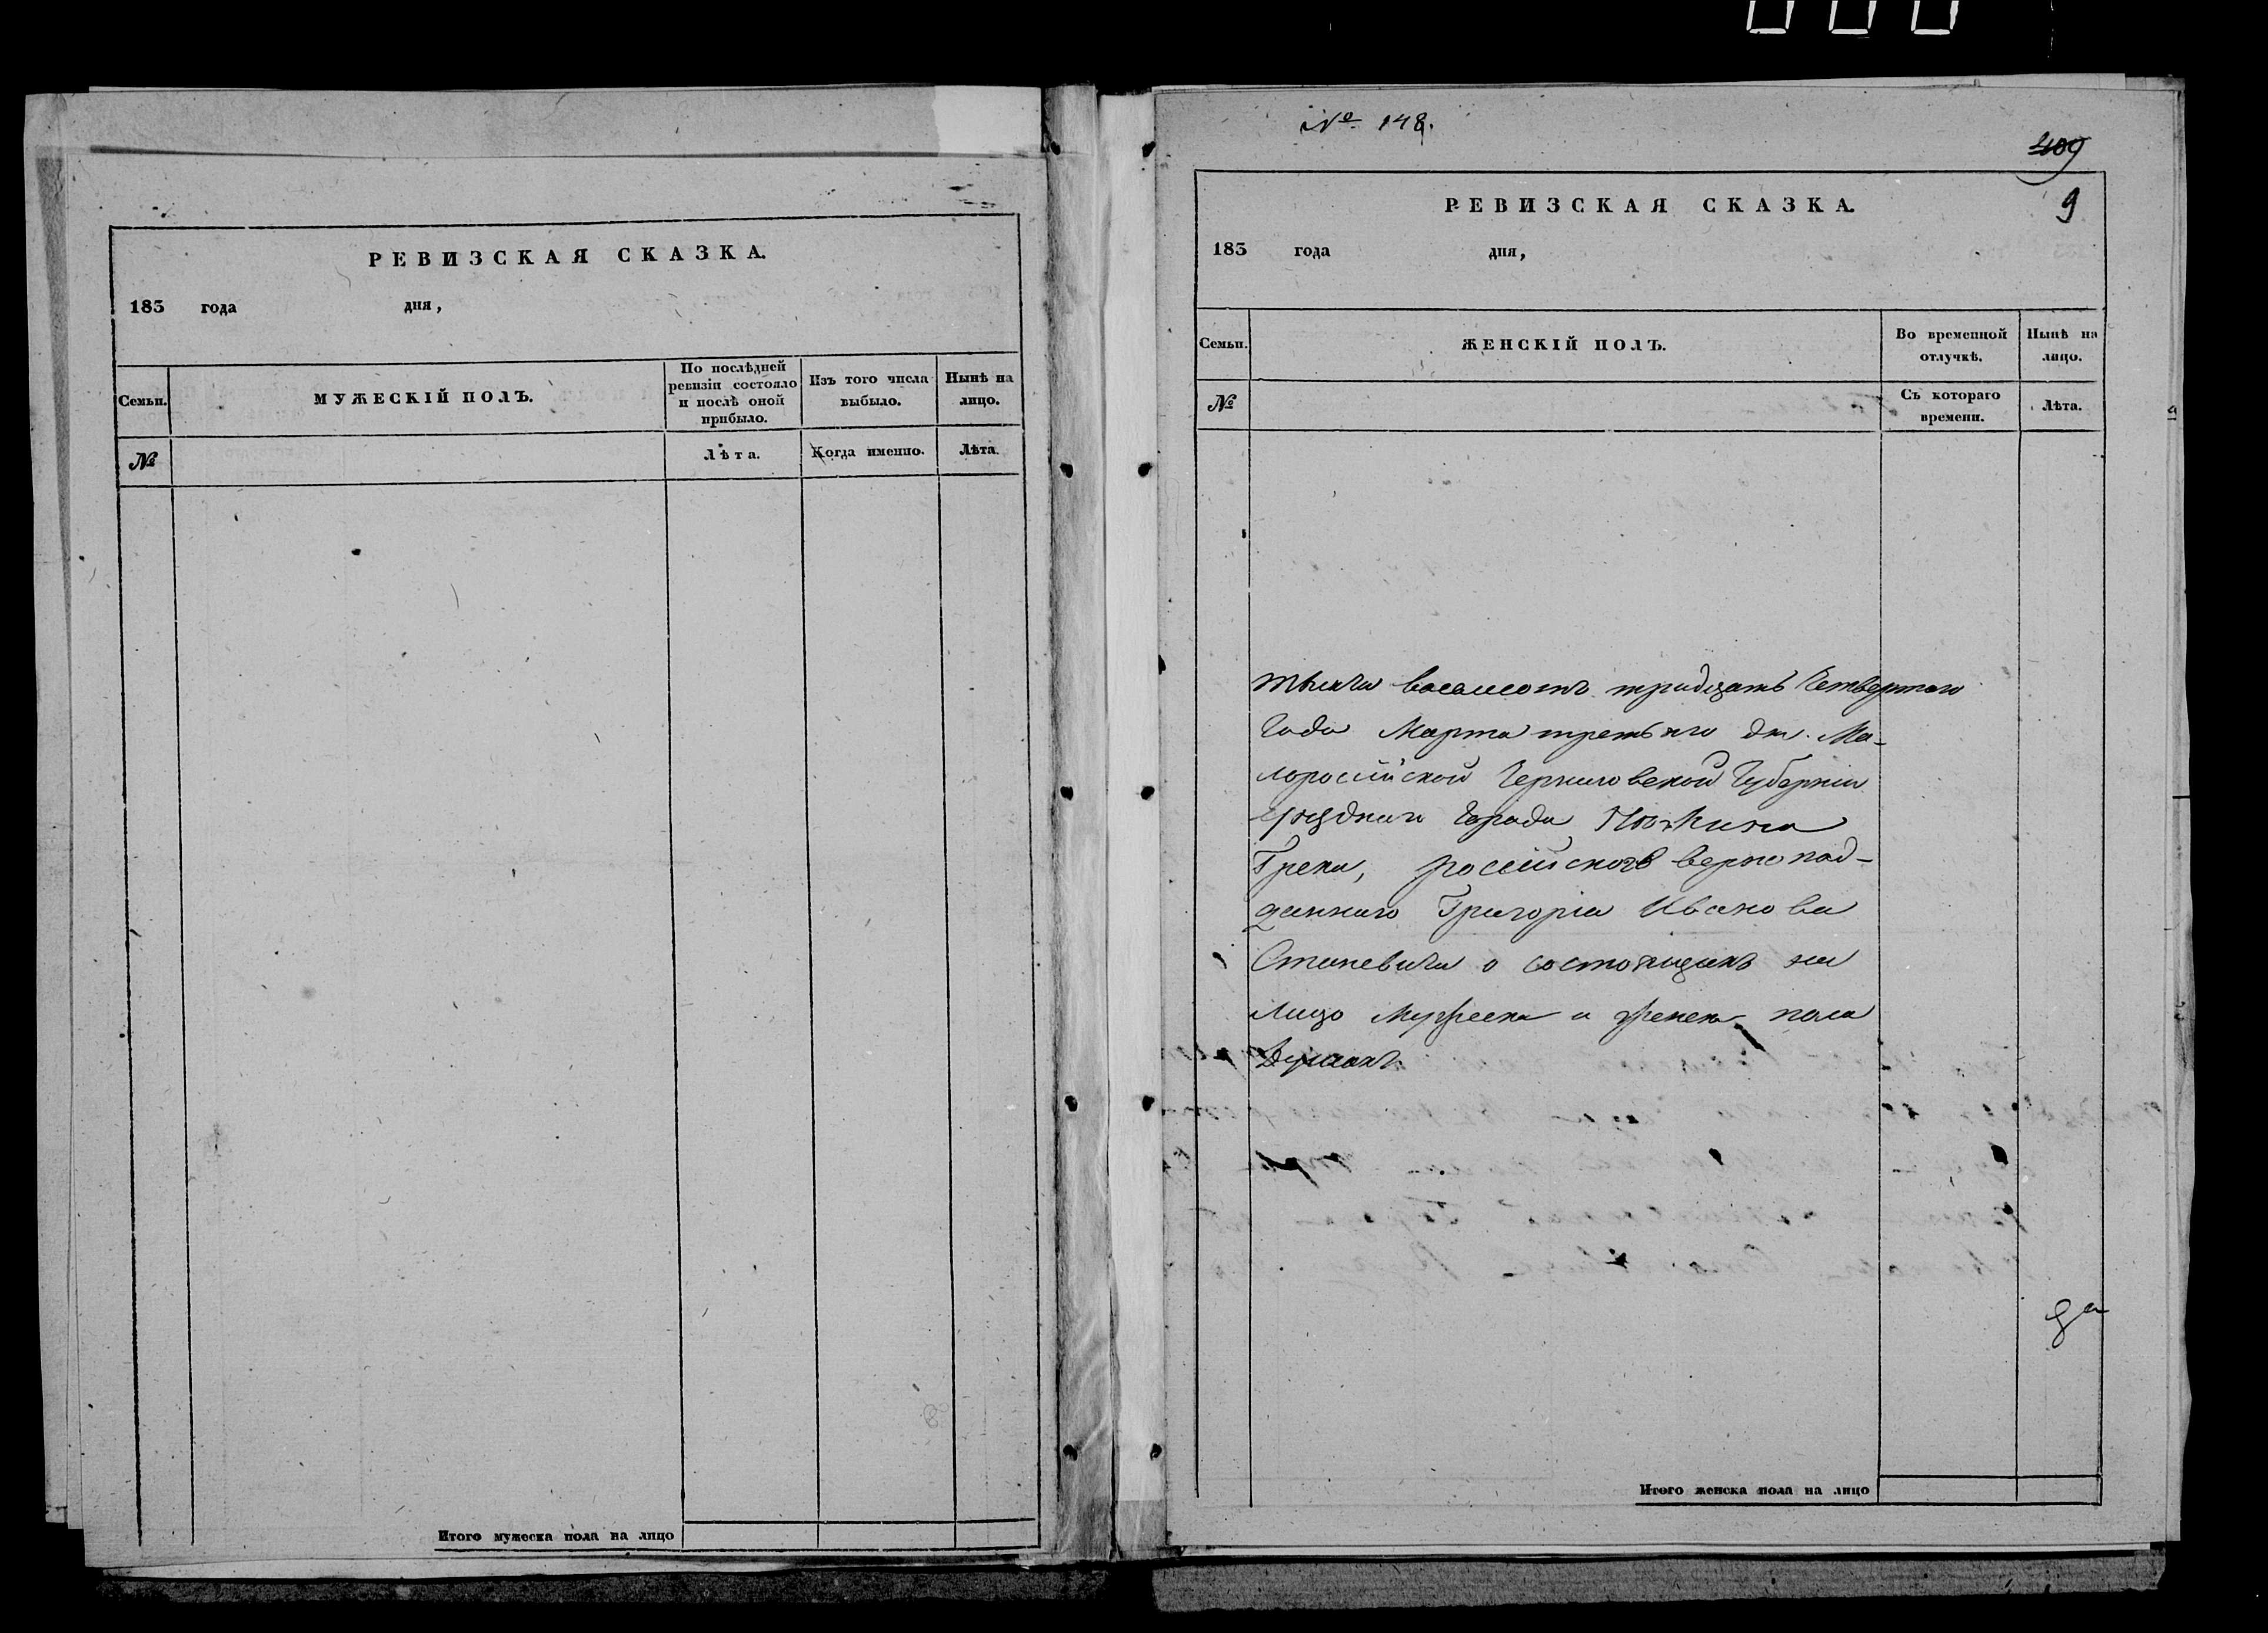 РЕВИЗСКАЯ СКАЗКА.
183 года дня,
Семьи.
МУЖЕСКІЙ ПОЛЪ.
По послѣдней
ревизіи состояло
и послѣ оной
прибыло.
Изъ того числа
выбыло.
Нынѣ на
лицо.
№
Лѣта.
Когда именно.
Лѣта.
Итого мужеска пола на лицо
№ 148.
409
9
РЕВИЗСКАЯ СКАЗКА.
183 года дня,
Семьи.
ЖЕНСКІЙ ПОЛЪ.
Во временной
отлучкѣ.
Нынѣ на
лицо.
№
Съ котораго
времени.
Лѣта.
тысяча восемсотъ тридцать Четвертого
Года Марта третьяго дня. Ма-
лоросiйской Черниговской Губернiи
уезднаго Города Нѣжина
Грека, росiйскаго вернопод-
данного Григорiя Иванова
Станевича о состоящихъ на
лицо Мужеска и женска пола
Душахъ
Итого женска пола на лицо